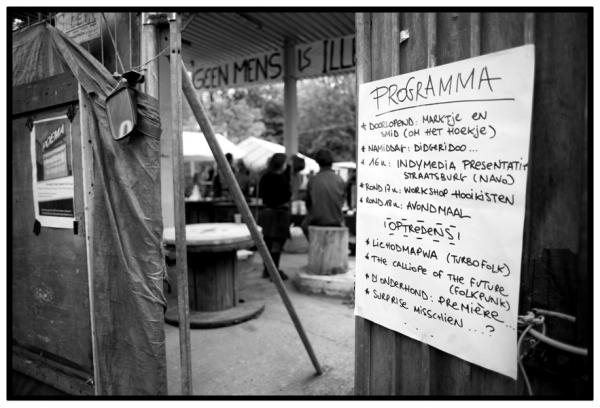 GEEN MENS IS ILLE
POEMA
PROGRAMMA
* DOORLOPEND: MARKTJE EN
SMID (OM HET HOEKJE)
* NAMIDDAG: DIDGERIDOO...
* 16u: INDYMEDIA PRESENTATI
STRAATSBURG (NAVO)
* ROND 17u: WORKSHOP HOOIKISTEN
* ROND 18u: AVONDMAAL
¡OPTREDENS!
* LICHODMAPWA (TURBOFOLK)
* THE CALLIOPE OF THE FUTURE
(FOLKPUNK)
* D'ONDERHOND: PREMIÈRE...
* SURPRISE MISSCHIEN....?
...